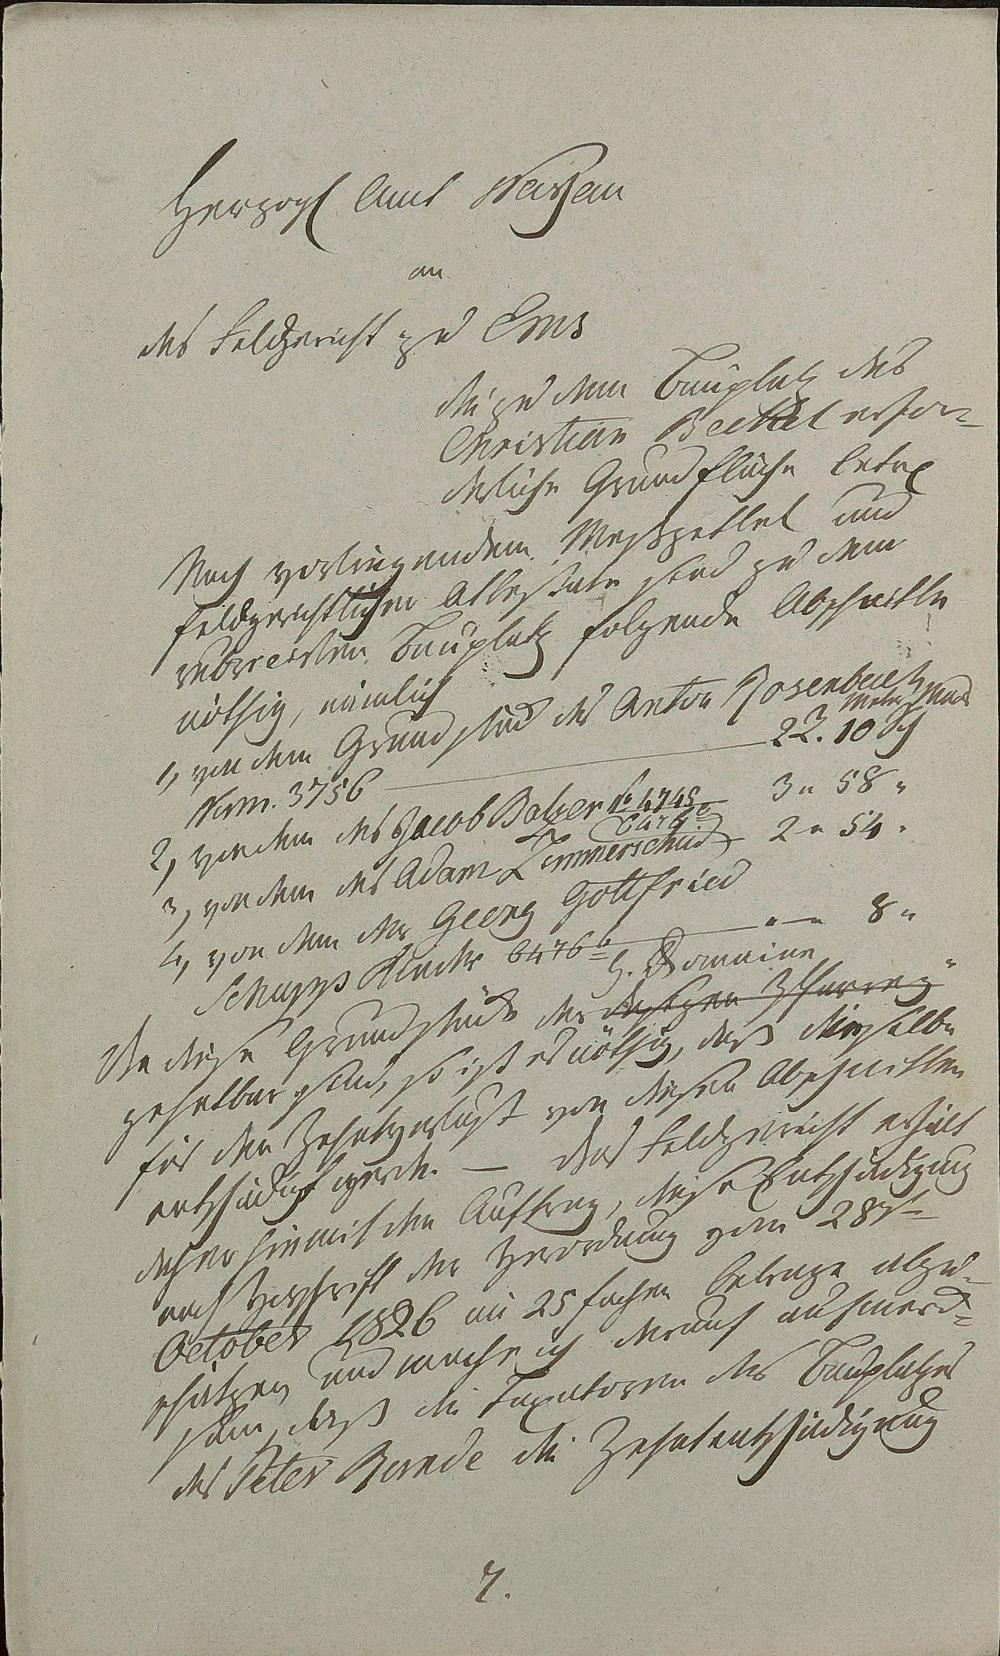 Herzogl Amt Nassau
an
das Feldgericht zu Ems
die zu dem Bauplatz des
Christian Becktel erfor=
derliche Grundfläche betr
Nach vorliegendem Meßzettel und
feldgerichtlichem Atteste sind zu dem
rubricirten Bauplatz folgende Abschnitte
nöthig, nämlich
1, von dem Grundstück des Anton Rosenbach
Num. 3756 — 22. 10 Sch
2, von dem des Jacob Balzer No 4745 3 " 58 "
3, von dem des Adam Zimmerschied 2 " 54 "
4, von dem der Georg Gottfried
Schupps Kinder 6476 b — " — 8 "
Da diese Grundstücke der H. Domaine
zehntbar sind, so ist es nöthig, daß dieselbe
für den Zehntverlust von diesen Abschnitten
entschädigt werde. — Das Feldgericht erhält
daher hiermit den Auftrag, diese Entschädigung
nach Vorschrift der Verordnung vom 28ten
October 1826 im 25 fachen Betrage abzu=
schätzen und mache ich darauf aufmerk=
sam, daß die Taxatoren des Bauplatzes
des Peter Bende die Zehntentschädigung
7.